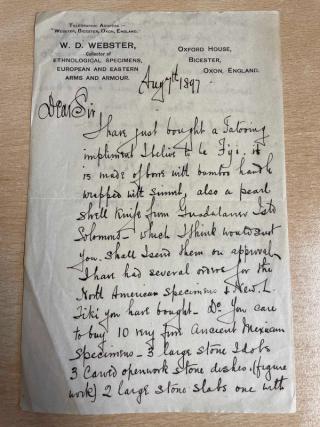 TELEGRAPHIC ADDRESS —
"WEBSTER, BICESTER, OXON, ENGLAND."
W. D. WEBSTER,
Collector of
ETHNOLOGICAL SPECIMENS,
EUROPEAN AND EASTERN
ARMS AND ARMOUR.
OXFORD HOUSE,
BICESTER,
OXON, ENGLAND.
Aug 7th 1897
Dear Sir
I have just bought a Tatooing
impliment I belive to be Fiji. it
is made of bone with bamboo handle
wrapped with sinnit, also a pearl
shell knife from Guadalanar Isld
Solomons – which I think would suit
you. Shall I send them on approval
I have had several orders for the
North American Specimens & New. Z.
Tiki you have bought – Do you care
to buy 10 very fine Ancient Mexican
Specimens – 3 large Stone Idols
3 Carved openwork Stone dishes. (figure
work) 2 large Stone Slabs one with